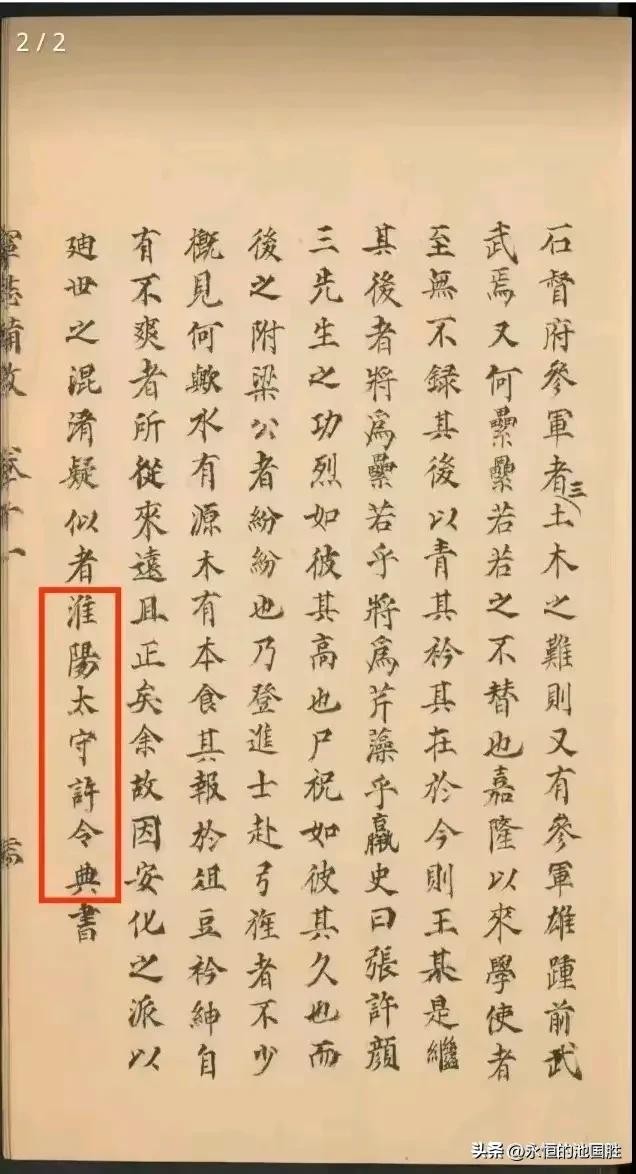 2/2
石督府參軍者三土木之難則又有參軍雄踵前武
武焉又何纍纍若若之不替也嘉隆以來學使者
至無不録其後以青其衿其在於今則王某是繼
其後者將爲纍若乎將爲芹藻乎史曰張許顏
三先生之功烈如彼其高也尸祝如彼其久也而
後之附梁公者紛紛也乃登進士赴弓旌者不少
概見何歟水有源木有本食其報於俎豆衿紳自
有不爽者所從來遠且正矣余故因安化之派以
廸世之混淆疑似者淮陽太守許令典書
頭条 @永恒的池国胜